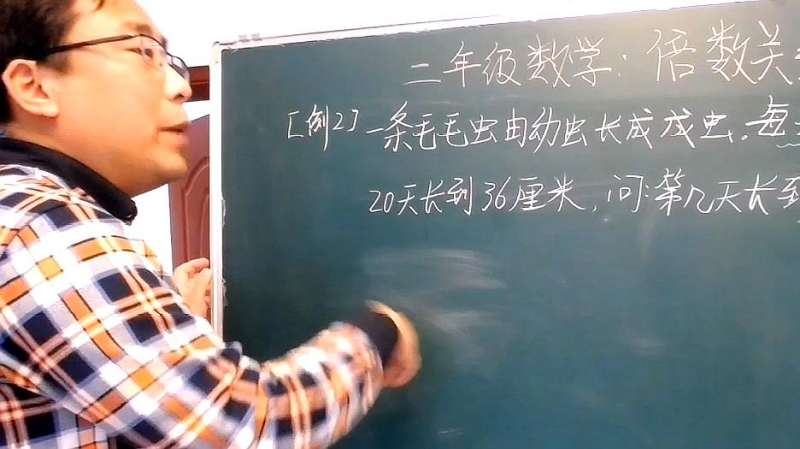 二年级数学：倍数关
[例2]一条毛毛虫由幼虫长成成虫，每
20天长到36厘米，问：第几天长到